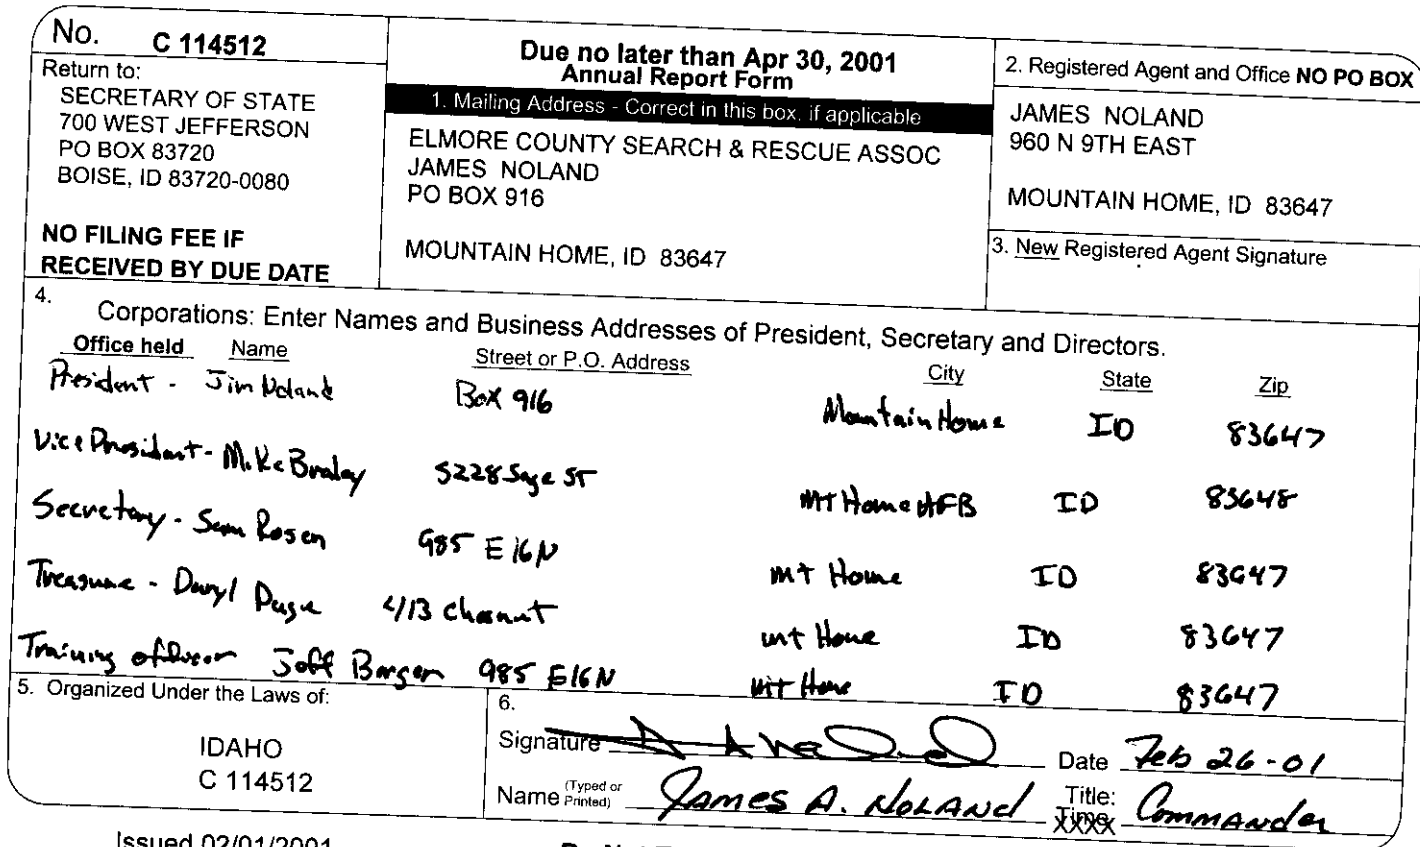 No. C 114512
Return to:
SECRETARY OF STATE
700 WEST JEFFERSON
PO BOX 83720
BOISE, ID 83720-0080
NO FILING FEE IF
RECEIVED BY DUE DATE
Due no later than Apr 30, 2001
Annual Report Form
1. Mailing Address - Correct in this box, if applicable
ELMORE COUNTY SEARCH & RESCUE ASSOC
JAMES NOLAND
PO BOX 916
MOUNTAIN HOME, ID 83647
2. Registered Agent and Office NO PO BOX
JAMES NOLAND
960 N 9TH EAST
MOUNTAIN HOME, ID 83647
3. New Registered Agent Signature
4. Corporations: Enter Names and Business Addresses of President, Secretary and Directors.
Office held Name Street or P.O. Address City State Zip
President - Jim Noland Box 916 Mountain Home ID 83647
Vice President - Mike 5228 Sage ST MT Home AFB ID 83648
Secretary - Sam Rosen 985 E 16 N MT Home ID 83647
Daryl 413 mt Home ID 83647
Training Jeff 985 E 16 N MT Home ID 83647
5. Organized Under the Laws of:
IDAHO
C 114512
6.
Signature Date Feb 26-01
Name (Typed or Printed) James A. Noland Title: Commander
Issued 02/01/2001